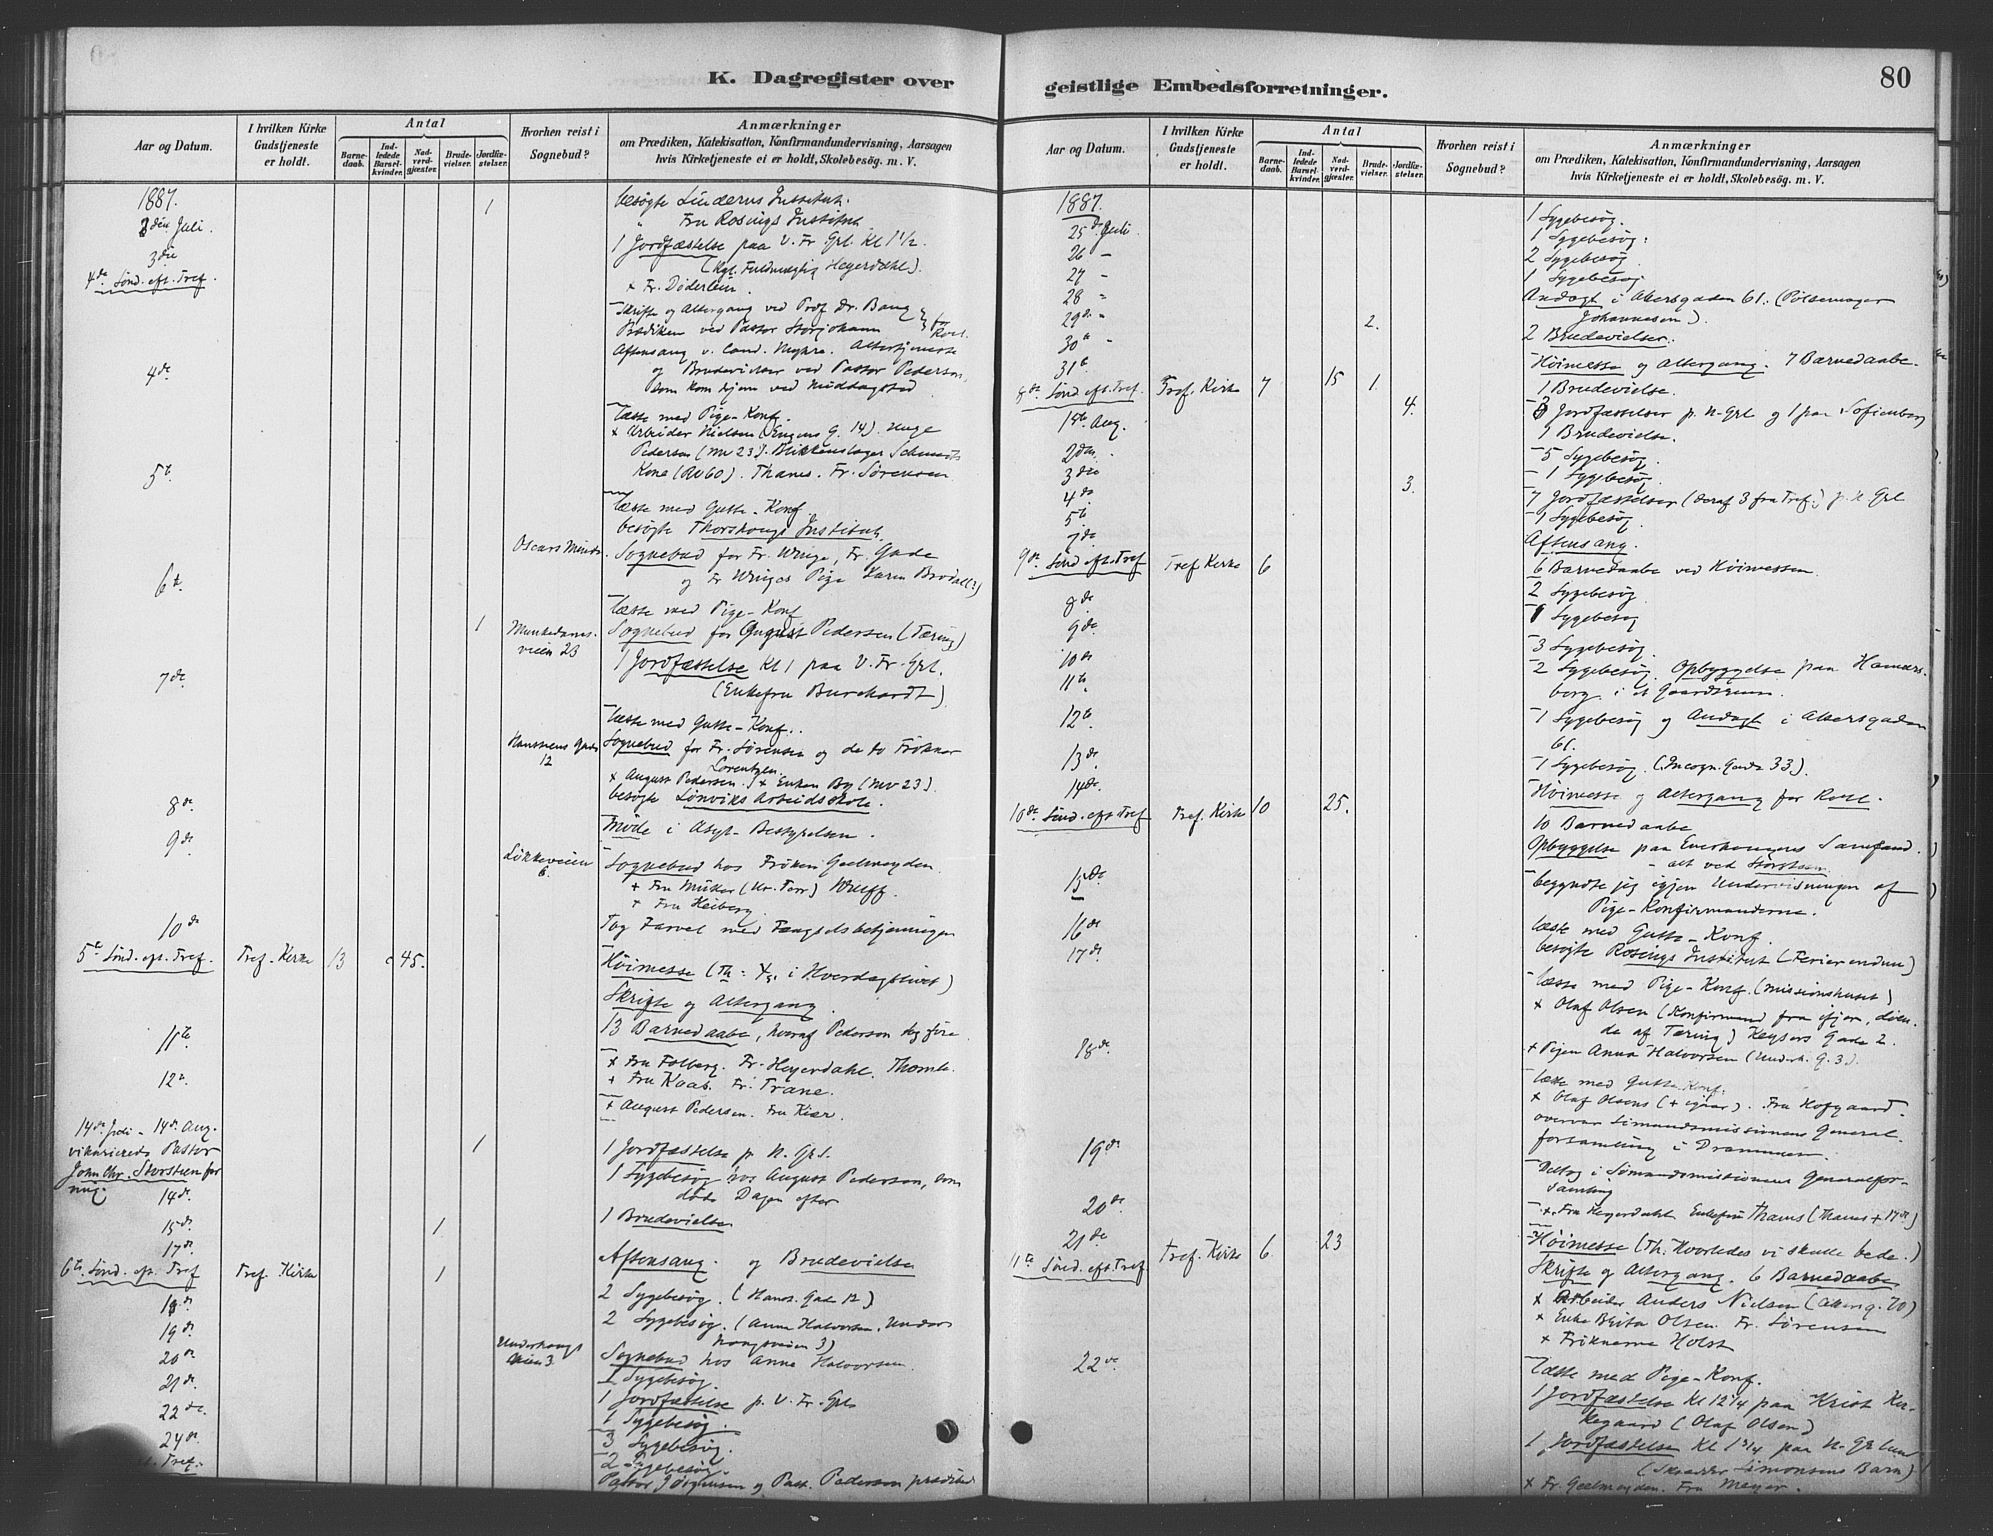 K. Dagregister over
Aar og Datum.
I hvilken Kirke Gudstjeneste er holdt.
Antal
Barnedaab.
Indledede Barselkvinder.
Nadverdgjæster.
Brudevielser.
Jordfæstelser.
Hvorhen reist i Sognebud?
Anmærkninger
om Prædiken, Katekisation, Konfirmandundervisning, Aarsagen
hvis Kirketjeneste ei er holdt, Skolebesøg. m. V.
1887.
besøgte Linderns Institut.
2den Juli.
1
" Fru Rosings Institut
3die
1 Jordfæstelse paa V. Fr Grl. Kl 1 1/2.
4de Sønd. eft. Tref.
(Kgl. Fuldmægtig Heyerdahl)
+ Fr. Døderlein.
Skrifte og Altergang ved Prof Dr. Bang
Prædiken ved Pastor Storjohann
for Roll.
Aftensang v. Cand. Myhre. Altertjeneste
4de
og Brudevielser ved Pastor Pederson,
som kom hjem ved Middagstid
læste med Pige-Konf.
+ Arbeider Nielsen (Engens G. 14). unge
Pedersen (Mv 23). Blikkenslager Schmidts
5te
Kone (Rv 60). Thams. Fr. Sørensen
læste med Gutte-Konf
besøgte Thorskougs Institut.
Oscars Minde. Sognebud for Fr. Winge, Fr. Gade
og Fr Winges Pige Karen Brodall?)
6te
læste med Pige-Konf
1 Munkedams- Sognebud for August Pedersen (Tæring)
veien 23
1 Jordfæstelse Kl 1 paa V. Fr. Grl.
7de
(Enkefru Burchardt)
læste med Gutte-Konf..
Hansteens Gade Sognebud for Fr. Sørensen og de to Frøkner
12
Lorentzen.
+ August Pedersen. + Enken By (Mv 23).
8de
besøgte Lønviks Arbeidsskole.
9de
Møde i Asyl-Bestyrelsen.
Løkkeveien Sognebud hos Frøken Geelmeyden
6.
+ Fru Müller (Kr. Torv) Wulff.
+ Fru Heiberg.
10de
Tog Farvel med Fængselsbetjeningen
5te Sønd. eft. Tref. Tref. Kirke 13 c 45.
Høimesse (Th: i Hverdagslivet)
Skrifte og Altergang
11te
13 Barnedaabe, hvoraf Pederson tog fire
+ Fru Folberg. Fr. Heyerdahl. Thomle.
12te
+ Fru Kaas. Fr. Trane.
+ August Pedersen. Fru Kiær.
14de Juli - 14de Aug.
vikarierede Pastor 1 1 Jordfæstelse p. N. Grl.
John Chr. Storsteen for
mig.
1 Sygebesøg hos August Pedersen, som
14de.
døde Dagen efter
15de 1 1 Brudevielse
17de
Aftensang. og Brudevielse
6te. Sønd. eft. Tref Tref. Kirke 1
18de
2 Sygebesøg. (Hanst. Gade 12)
19de
2 Sygebesøg. (Anna Halvorsen. Under
Haugsveien 3)
20de
Underhaugs
veien 3.
Sognebud hos Anna Halvorsen.
21de.
1 Sygebesøg.
22de.
1 Jordfæstelse p. V. Fr. Grl.
1 Sygebesøg.
24de.
3 Sygebesøg.
Tref.
2 Sygebesøg
Pastor Jörgensen og Past. Pederson prædiked
geistlige Embedsforretninger.
80
Aar og Datum.
I hvilken Kirke Gudstjeneste er holdt.
Antal
Barnedaab.
Indledede Barselkvinder.
Nadverdgjæster.
Brudevielser.
Jordfæstelser.
Hvorhen reist i Sognebud?
Anmærkninger
om Prædiken, Katekisation, Konfirmandundervisning, Aarsagen
hvis Kirketjeneste ei er holdt, Skolebesøg. m. V.
1887.
1 Sygebesøg.
25de Juli.
1 Sygebesøg:
26 -
2 Sygebesøg
27 -
1 Sygebesøg
28 "
Andagt i Akersgaden 61. (Pølsemager
Johannesen).
29de "
2.
2 Brudevielser.
30te "
31te
Høimesse og Altergang. 7 Barnedaabe.
8de. Sønd. eft. Tref. Tref. Kirke 7 15 1.
1 Brudevielse.
4. 3 Jordfæstelser p. N-Grl og 1 paa Sofienberg
1ste Aug.
1 Brudevielse.
2den.
5 Sygebesøg.
3die
1 Sygebesøg.
4de 3.
7 Jordfæstelser (deraf 3 fra Tref.) p. N Grl
5te
1 Sygebesøg.
7de
Aftensang.
9de. Sønd. eft. Tref Tref. Kirke 6
6 Barnedaabe ved Høimessen.
8de
2 Sygebesøg
9de.
1 Sygebesøg
10de
3 Sygebesøg.
11te
2 Sygebesøg. Opbyggelse paa Hammers-
borg i et Gaardsrum.
12te.
1 Sygebesøg og Andagt i Akersgaden
61.
13de.
1 Sygebesøg. (Incogn. Gade 33).
14de.
Høimesse og Altergang for Roll.
10de Sønd. eft. Tref Tref. Kirke 10 25.
10 Barnedaabe
Opbyggelse paa Enerhaugens Samfund.
- alt ved Storsteen.
15de.
begyndte jeg igjen Undervisningen af
Pige-Konfirmanderne.
16de
læste med Gutte-Konf.
17de.
besøgte Rosings Institut (Ferier endnu)
læste med Pige-Konf. (Missionshuset)
+ Olaf Olsen (Konfirmand fra ifjor, døen-
de af Tæring) Keysers Gade 2.
18de.
+ Pigen Anna Halvorsen (Underh. G. 3).
læste med Gutte Konf.
+ Olaf Olsens (+ igaar). Fru Hofgaard.
overvar Sømandsmissionens General-
19de
forsamling i Drammen.
Deltog i Sømandsmissionens Generalfor-
samling
20de.
+ Fru Heyerdahl. Enkefru Thams (Thams + 17de)
21de
Høimesse (Th. Hvorledes vi skulle bede.)
11te Sønd. eft. Tref. Tref. Kirke 6 23
Skrifte og Altergang. 6 Barnedaabe
+ Arbeider Anders Nielsen (Akersg. 70)
+ Enke Brita Olsen. Fr. Sørensen
+ Frøknerne Holst
22de
læste med Pige-Konf.
1 Jordfæstelse Kl 12 1/4 paa Krist Kir-
kegaard (Olaf Olsen)
1 Jordfæstelse Kl 1 3/4 paa N. Gr lun
(Skrædder Simonsens Barn)
+ Fr. Geelmeyden. Fru Meyer.